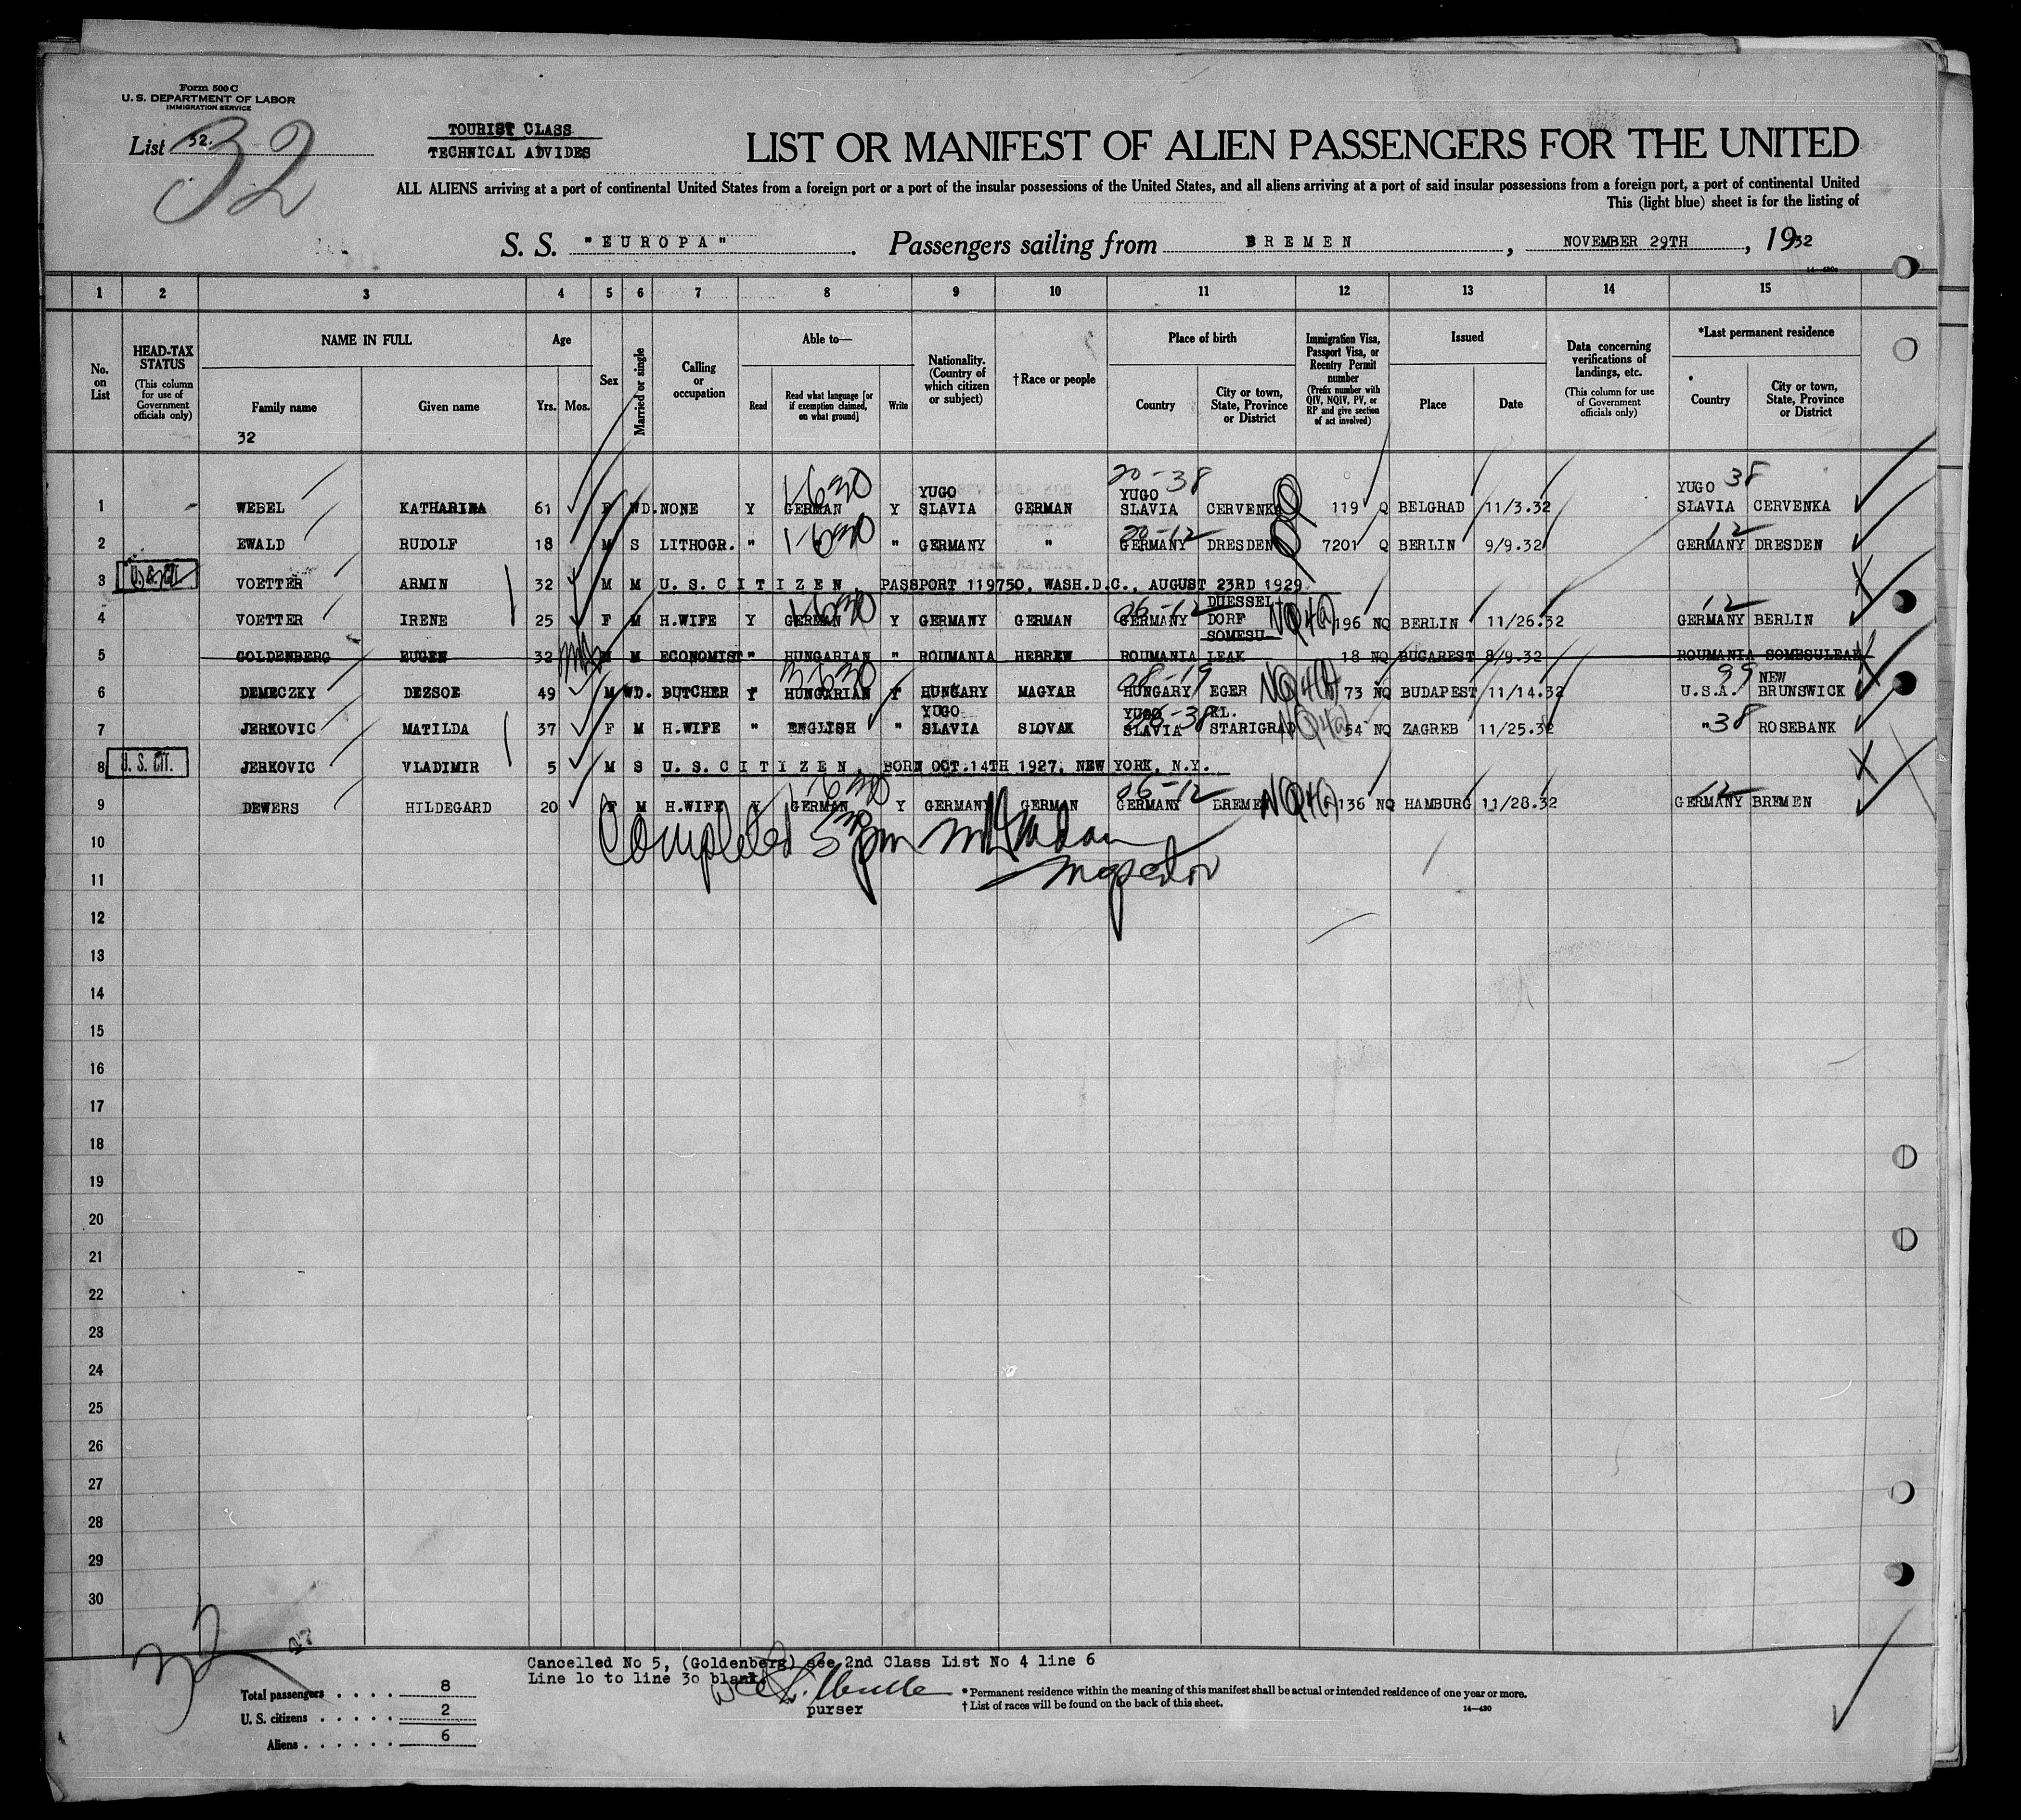 Form 500 C
U. S. DEPARTMENT OF LABOR
IMMIGRATION SERVICE
List 32.
32
TOURIST CLASS
TECHNICAL ADVIDES
LIST OR MANIFEST OF ALIEN PASSENGERS FOR THE UNITED
ALL ALIENS arriving at a port of continental United States from a foreign port or a port of the insular possessions of the United States, and all aliens arriving at a port of said insular possessions from a foreign port, a port of continental United
This (light blue) sheet is for the listing of
S. S. "EUROPA". Passengers sailing from BREMEN, NOVEMBER 29TH, 1932
14—430a
1 2 3 4 5 6 7 8 9 10 11 12 13 14 15
No. on List
HEAD-TAX STATUS (This column for use of Government officials only)
NAME IN FULL
Family name
Given name
32
Age
Yrs. Mos.
Sex
Married or single
Calling or occupation
Able to—
Read
Read what language [or if exemption claimed, on what ground]
Write
Nationality. (Country of which citizen or subject)
†Race or people
Place of birth
Country
City or town, State, Province or District
Immigration Visa, Passport Visa, or Reentry Permit number (Prefix number with QIV, NQIV, PV, or RP and give section of act involved)
Issued
Place
Date
Data concerning verifications of landings, etc. (This column for use of Government officials only)
*Last permanent residence
Country
City or town, State, Province or District
20-38 38
1 WEBEL KATHARINA 61 F WD. NONE Y GERMAN Y YUGO SLAVIA GERMAN YUGO SLAVIA CERVENKA 119 Q BELGRAD 11/3.32 YUGO SLAVIA CERVENKA
20-12 12
2 EWALD RUDOLF 18 M S LITHOGR. " " " GERMANY " GERMANY DRESDEN 7201 Q BERLIN 9/9.32 GERMANY DRESDEN
3 U. S. CIT. VOETTER ARMIN 32 M M U. S. CITIZEN PASSPORT 119750, WASH.D.C., AUGUST 23RD 1929
26-12 12
4 VOETTER IRENE 25 F M H.WIFE Y GERMAN Y GERMANY GERMAN GERMANY DUESSEL- DORF 196 NQ BERLIN 11/26.32 GERMANY BERLIN
5 GOLDENBERG EUGEN 32 M M ECONOMIST " HUNGARIAN " ROUMANIA HEBREW ROUMANIA SOMESU LEAK 18 NQ BUCAREST 8/9.32 ROUMANIA SOMESULEAK
28-19 99
6 DEMECZKY DEZSOE 49 M WD. BUTCHER Y HUNGARIAN Y HUNGARY MAGYAR HUNGARY EGER 73 NQ BUDAPEST 11/14.32 U.S.A. NEW BRUNSWICK
26-38 38
7 JERKOVIC MATILDA 37 F M H.WIFE " ENGLISH " YUGO SLAVIA SLOVAK YUGO SLAVIA KL. STARIGRAD 54 NQ ZAGREB 11/25.32 " ROSEBANK
8 U. S. CIT. JERKOVIC VLADIMIR 5 M S U. S. CITIZEN, BORN OCT.14TH 1927, NEW YORK, N.Y.
26-12 12
9 DEWERS HILDEGARD 20 F M H.WIFE Y GERMAN Y GERMANY GERMAN GERMANY BREMEN 136 NQ HAMBURG 11/28.32 GERMANY BREMEN
Completed
Inspector
10
11
12
13
14
15
16
17
18
19
20
21
22
23
24
25
26
27
28
29
30
32
Total passengers . . . . 8
U. S. citizens . . . . . 2
Aliens . . . . . . 6
Cancelled No 5, (Goldenberg) see 2nd Class List No 4 line 6
Line 10 to line 30 blank
purser
* Permanent residence within the meaning of this manifest shall be actual or intended residence of one year or more.
† List of races will be found on the back of this sheet.
14—430